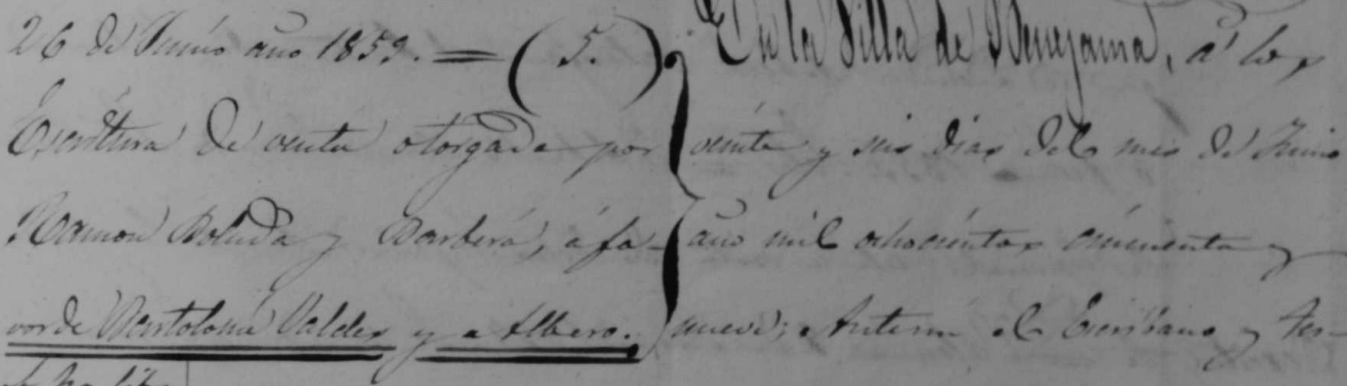 26 de Junio año 1859. = (5.)
Escritura de venta otorgada por
Ramon Boluda y Barberá, á fa-
vor de Bartolomé Valdes y a Albero.
En la Villa de Benejama, á los
veinte y seis dias del mes de Junio
año mil ochocientos cincuenta y
nueve; Antemi el Escribano y tes-